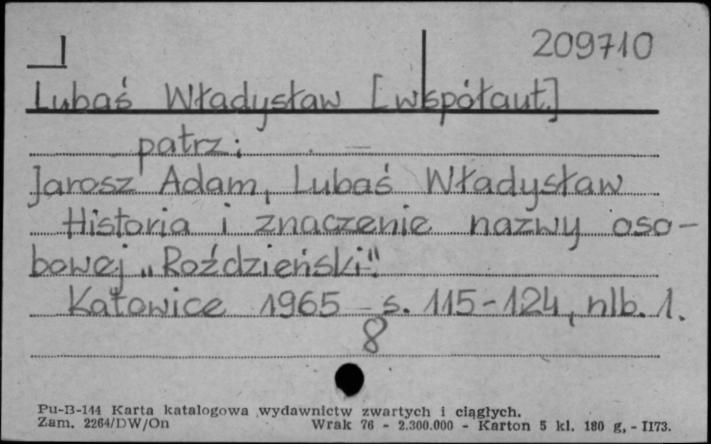 209710
Lubaś Władysław [współaut.]
patrz:
Jarosz Adam, Lubaś Władysław
Historia i znaczenie nazwy oso-
bowej „Roździeński"
Katowice 1965 s. 115-124, nlb. 1.
8
Pu-B-144 Karta katalogowa wydawnictw zwartych i ciągłych.
Zam. 2264/DW/On Wrak 76 - 2.300.000 - Karton 5 kl. 180 g, - I173.